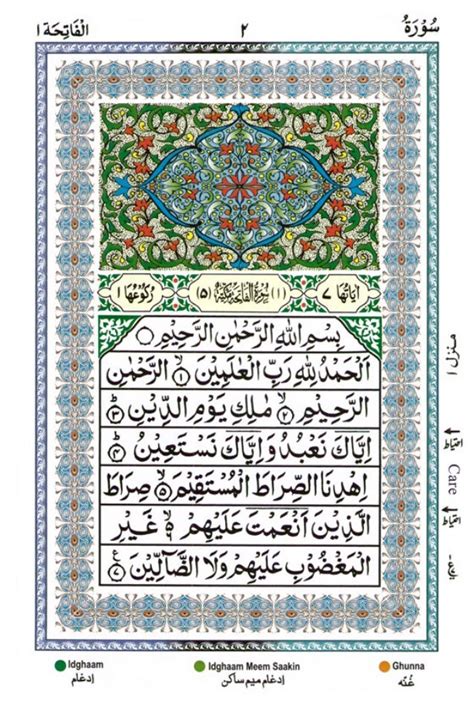 سُوْرَةُ ٢ اَلْفَاتِحَة ١
اٰيَاتُهَا ٧ (١) سُوْرَةُ الْفَاتِحَةِ مَكِّيَّةٌ (٥) رُكُوْعُهَا ١
بِسْمِ اللّٰهِ الرَّحْمٰنِ الرَّحِيْمِ
اَلْحَمْدُ لِلّٰهِ رَبِّ الْعٰلَمِيْنَ ١ الرَّحْمٰنِ
الرَّحِيْمِ ٢ مٰلِكِ يَوْمِ الدِّيْنِ ٣
اِيَّاكَ نَعْبُدُ وَاِيَّاكَ نَسْتَعِيْنُ ٤
اِهْدِنَا الصِّرَاطَ الْمُسْتَقِيْمَ ٥ صِرَاطَ
الَّذِيْنَ اَنْعَمْتَ عَلَيْهِمْ ٦ غَيْرِ
الْمَغْضُوْبِ عَلَيْهِمْ وَلَا الضَّآلِّيْنَ ٧
منزل ١
احتیاط
Care
احتیاط
Idghaam
إدغام
Idghaam Meem Saakin
إدغام میم ساکن
Ghunna
غُنّه